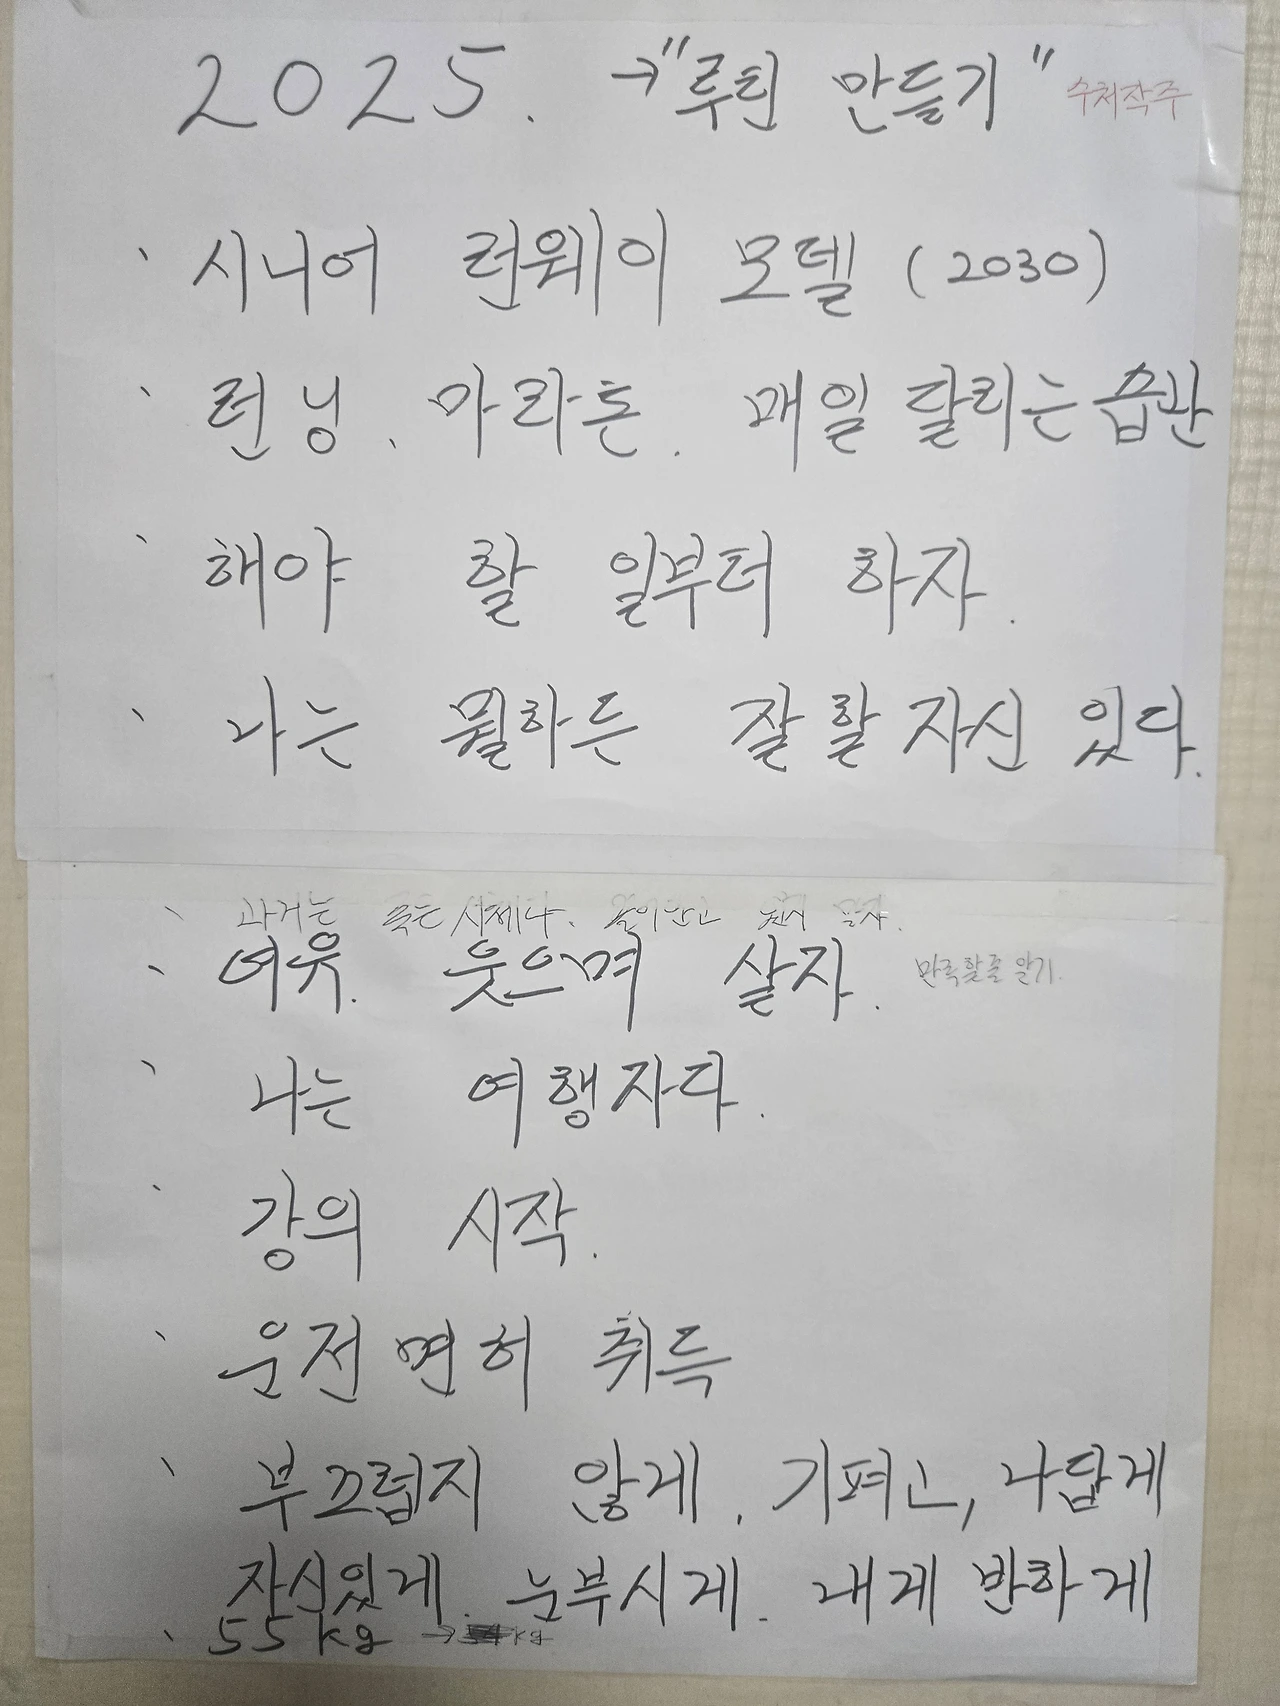 2025. →"루틴 만들기" 수처작주
、시니어 런웨이 모델 (2030)
、런닝. 마라톤. 매일 달리는 습관
、해야 할 일부터 하자.
、나는 뭘하든 잘 할 자신 있다.
、과거는 죽은 시체다.
、여유. 웃으며 살자. 만족할줄 알기.
、나는 여행자다.
、강의 시작.
、운전면허 취득
、부끄럽지 않게. 기펴고, 나답게
자신있게. 눈부시게. 내게 반하게
、55kg → kg